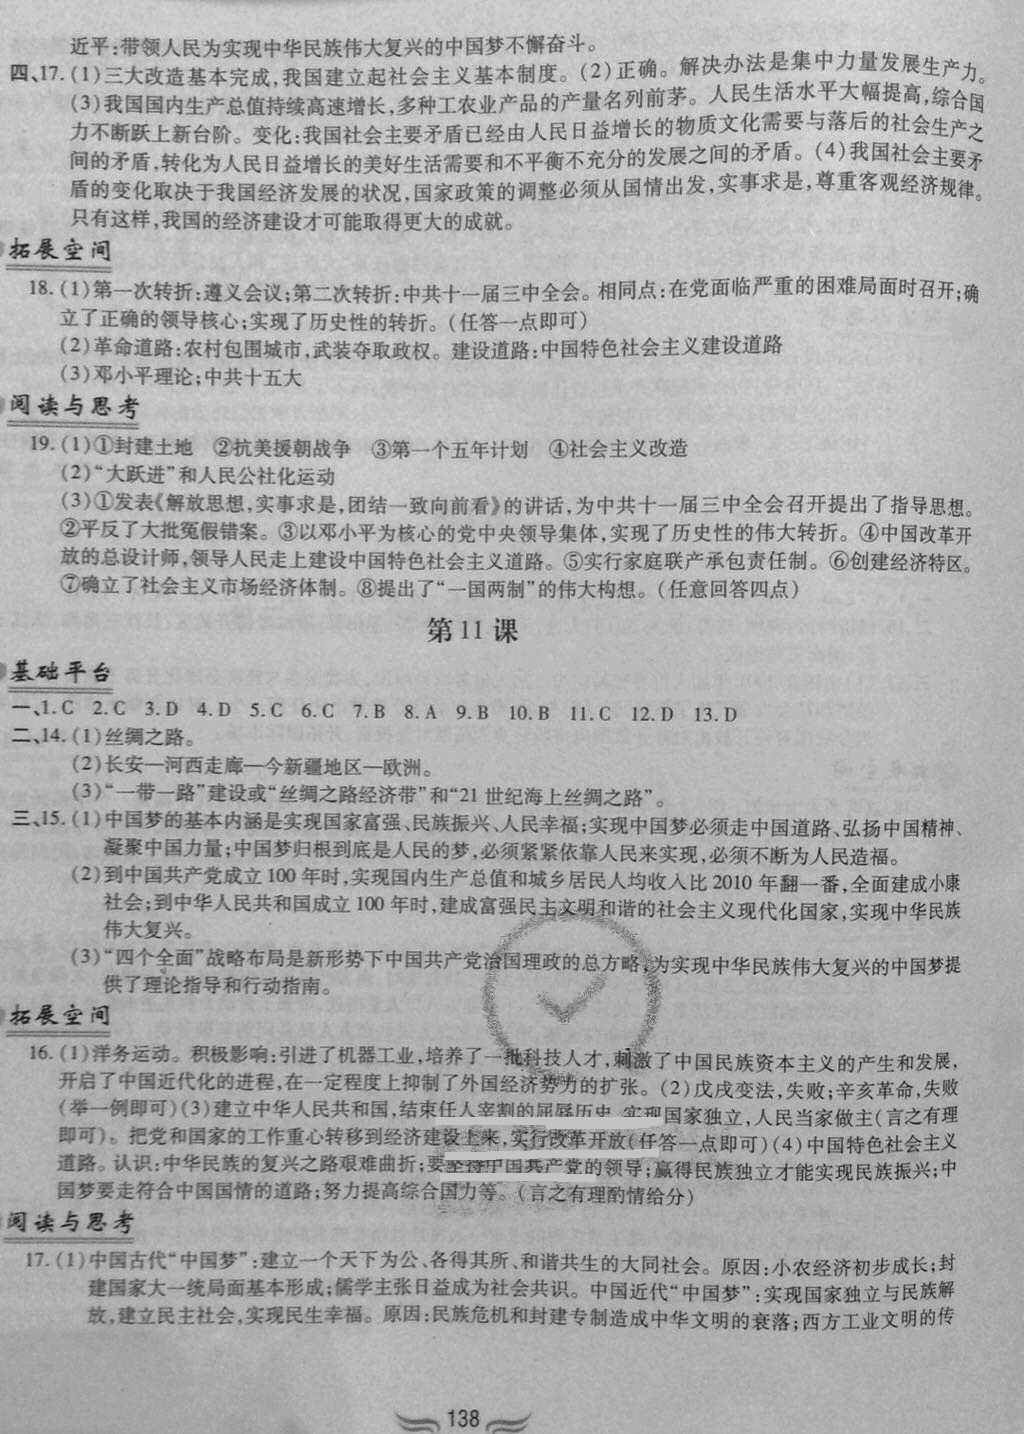 近平:带领人民为实现中华民族伟大复兴的中国梦不懈奋斗。
四、17.(1)三大改造基本完成,我国建立起社会主义基本制度。(2)正确。解决办法是集中力量发展生产力。
(3)我国国内生产总值持续高速增长,多种工农业产品的产量名列前茅。人民生活水平大幅提高,综合国
力不断跃上新台阶。变化:我国社会主要矛盾已经由人民日益增长的物质文化需要与落后的社会生产之
间的矛盾,转化为人民日益增长的美好生活需要和不平衡不充分的发展之间的矛盾。(4)我国社会主要矛
盾的变化取决于我国经济发展的状况,国家政策的调整必须从国情出发,实事求是,尊重客观经济规律。
只有这样,我国的经济建设才可能取得更大的成就。
拓展空间
18.(1)第一次转折:遵义会议;第二次转折:中共十一届三中全会。相同点:在党面临严重的困难局面时召开;确
立了正确的领导核心;实现了历史性的转折。(任答一点即可)
(2)革命道路:农村包围城市,武装夺取政权。建设道路:中国特色社会主义建设道路
(3)邓小平理论;中共十五大
阅读与思考
19.(1)①封建土地 ②抗美援朝战争 ③第一个五年计划 ④社会主义改造
(2)“大跃进”和人民公社化运动
(3)①发表《解放思想,实事求是,团结一致向前看》的讲话,为中共十一届三中全会召开提出了指导思想。
②平反了大批冤假错案。③以邓小平为核心的党中央领导集体,实现了历史性的伟大转折。④中国改革开
放的总设计师,领导人民走上建设中国特色社会主义道路。⑤实行家庭联产承包责任制。⑥创建经济特区。
⑦确立了社会主义市场经济体制。⑧提出了“一国两制”的伟大构想。(任意回答四点)
第11课
基础平台
一、1.C 2.C 3.D 4.D 5.C 6.C 7.B 8.A 9.B 10.B 11.C 12.D 13.D
二、14.(1)丝绸之路。
(2)长安—河西走廊—今新疆地区—欧洲。
(3)“一带一路”建设或“丝绸之路经济带”和“21世纪海上丝绸之路”。
三、15.(1)中国梦的基本内涵是实现国家富强、民族振兴、人民幸福;实现中国梦必须走中国道路、弘扬中国精神、
凝聚中国力量;中国梦归根到底是人民的梦,必须紧紧依靠人民来实现,必须不断为人民造福。
(2)到中国共产党成立100年时,实现国内生产总值和城乡居民人均收入比2010年翻一番,全面建成小康
社会;到中华人民共和国成立100年时,建成富强民主文明和谐的社会主义现代化国家,实现中华民族
伟大复兴。
(3)“四个全面”战略布局是新形势下中国共产党治国理政的总方略,为实现中华民族伟大复兴的中国梦提
供了理论指导和行动指南。
拓展空间
16.(1)洋务运动。积极影响:引进了机器工业,培养了一批科技人才,刺激了中国民族资本主义的产生和发展,
开启了中国近代化的进程,在一定程度上抑制了外国经济势力的扩张。(2)戊戌变法,失败;辛亥革命,失败
(举一例即可)(3)建立中华人民共和国,结束任人宰割的屈辱历史,实现国家独立,人民当家做主(言之有理
即可)。把党和国家的工作重心转移到经济建设上来,实行改革开放(任答一点即可)(4)中国特色社会主义
道路。认识:中华民族的复兴之路艰难曲折;要坚持中国共产党的领导;赢得民族独立才能实现民族振兴;中
国梦要走符合中国国情的道路;努力提高综合国力等。(言之有理酌情给分)
阅读与思考
17.(1)中国古代“中国梦”:建立一个天下为公、各得其所、和谐共生的大同社会。原因:小农经济初步成长;封
建国家大一统局面基本形成;儒学主张日益成为社会共识。中国近代“中国梦”:实现国家独立与民族解
放,建立民主社会,实现民生幸福。原因:民族危机和封建专制造成中华文明的衰落;西方工业文明的传
138